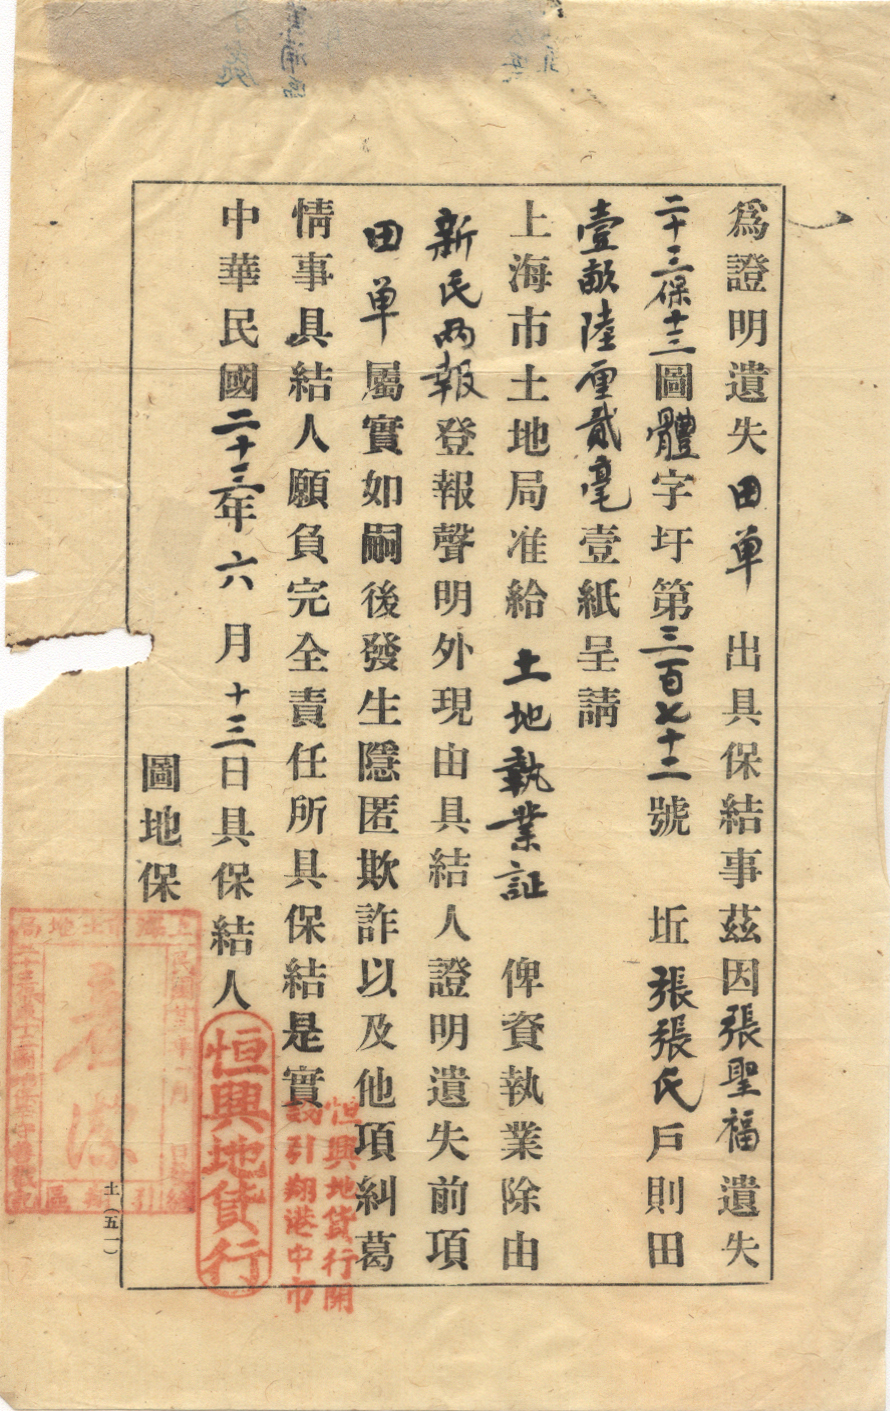 爲證明遺失田單出具保結事茲因張聖福遺失
二十三保十三圖體字圩第三百七十二號坵張張氏戶則田
壹畝陸厘貳毫壹紙呈請
上海市土地局准給土地執業証俾資執業除由
新民兩報登報聲明外現由具結人證明遺失前項
田單屬實如嗣後發生隱匿欺詐以及他項糾葛
情事具結人願負完全責任所具保結是實
中華民國二十三年六月十三日具保結人
恒興地貨行
恒興地貨行開
設引翔港中市
圖地保
上海市土地局
土(五一)